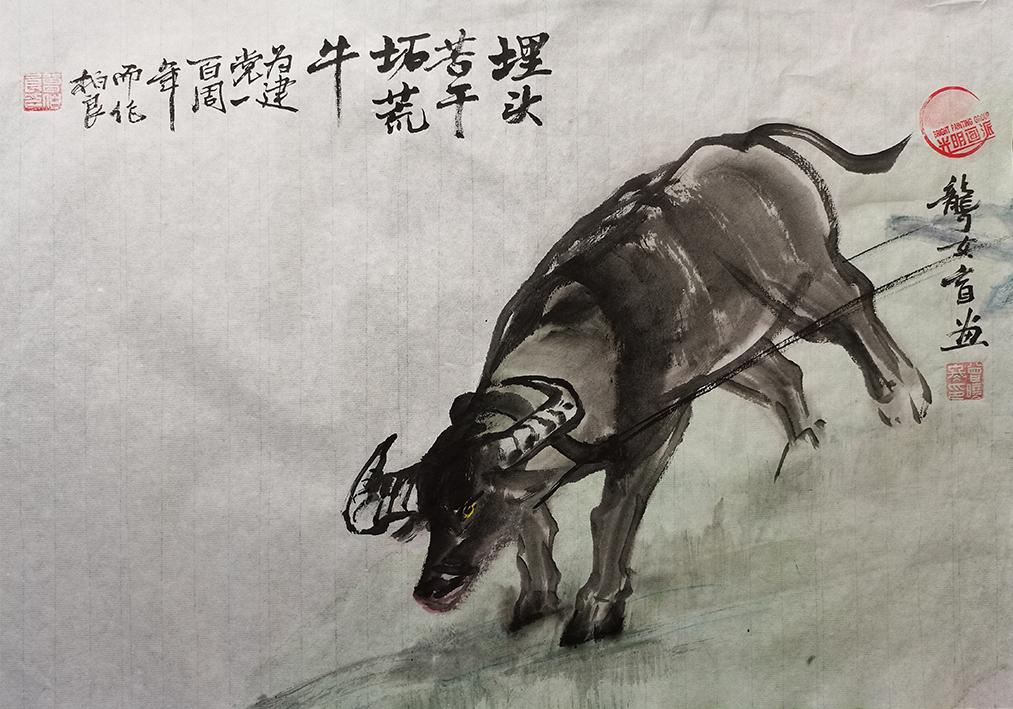 埋头
苦干
拓荒
牛
为建
党一
百周
年
而作
柏良
BRIGHT PAINTING GROUP
光明画派
聾女盲画